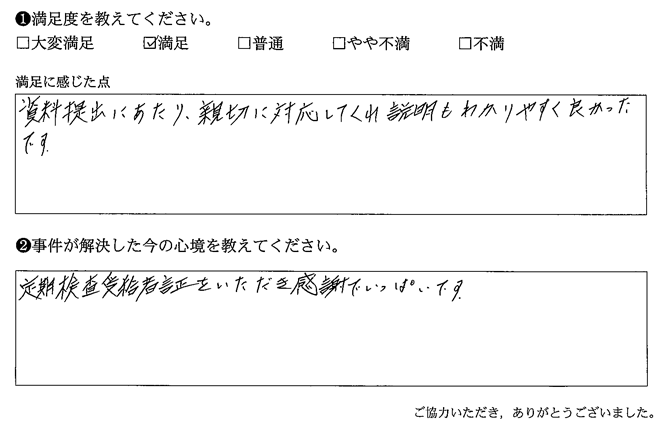 ❶満足度を教えてください。
□大変満足 ☑満足 □普通 □やや不満 □不満
満足に感じた点
資料提出にあたり、親切に対応してくれ説明もわかりやすく良かった
です
❷事件が解決した今の心境を教えてください。
定期検査受給者証をいただき感謝でいっぱいです
ご協力いただき，ありがとうございました。